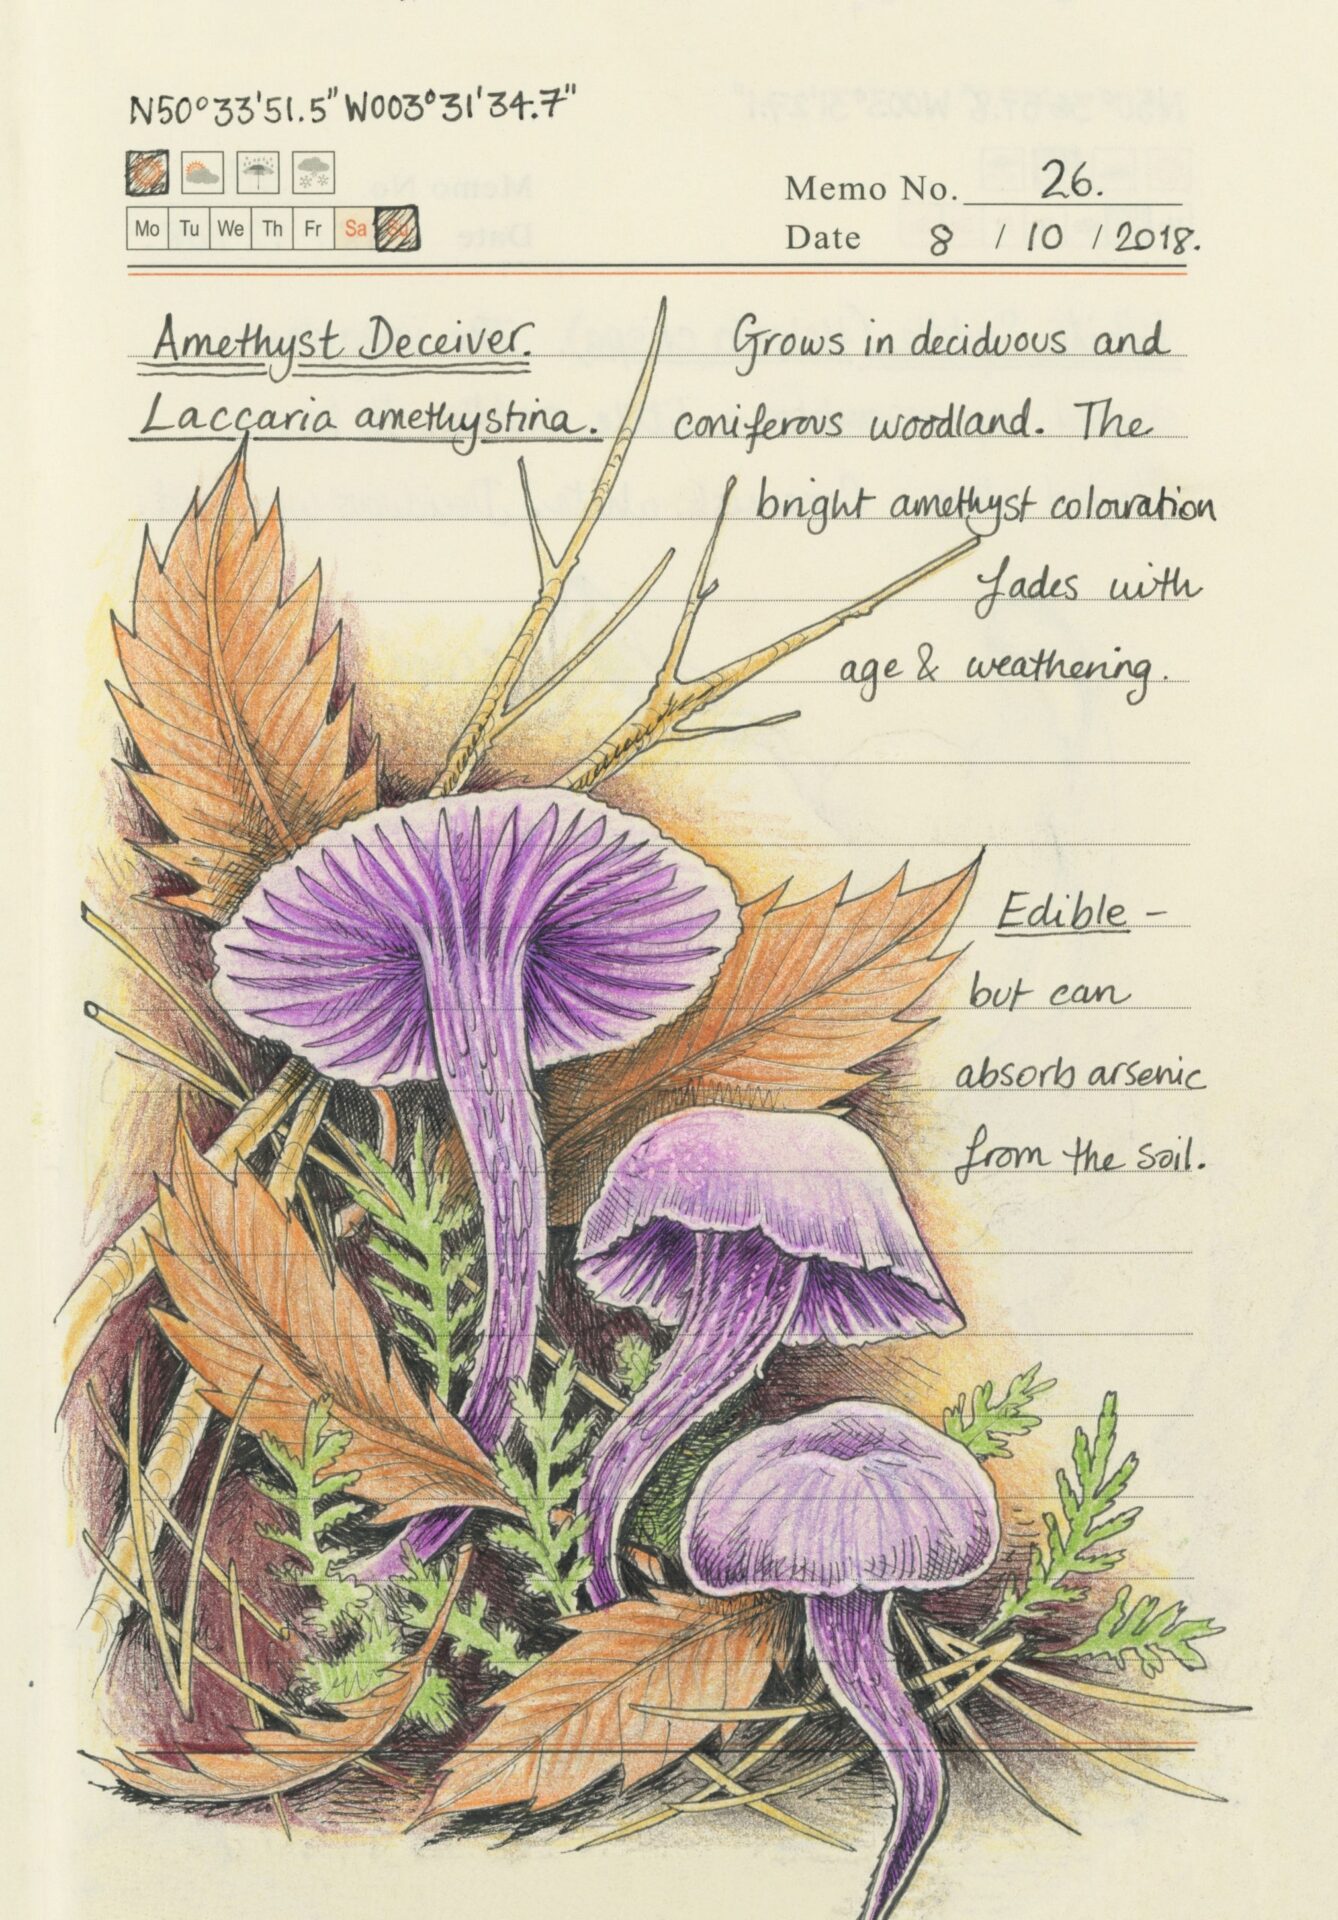 N50°33'51.5" W003°31'34.7"
Memo No. 26.
Mo Tu We Th Fr Sa Su
Date 8 / 10 / 2018.
Amethyst Deceiver.
Laccaria amethystina.
Grows in deciduous and
coniferous woodland. The
bright amethyst colouration
fades with
age & weathering.
Edible -
but can
absorb arsenic
from the soil.